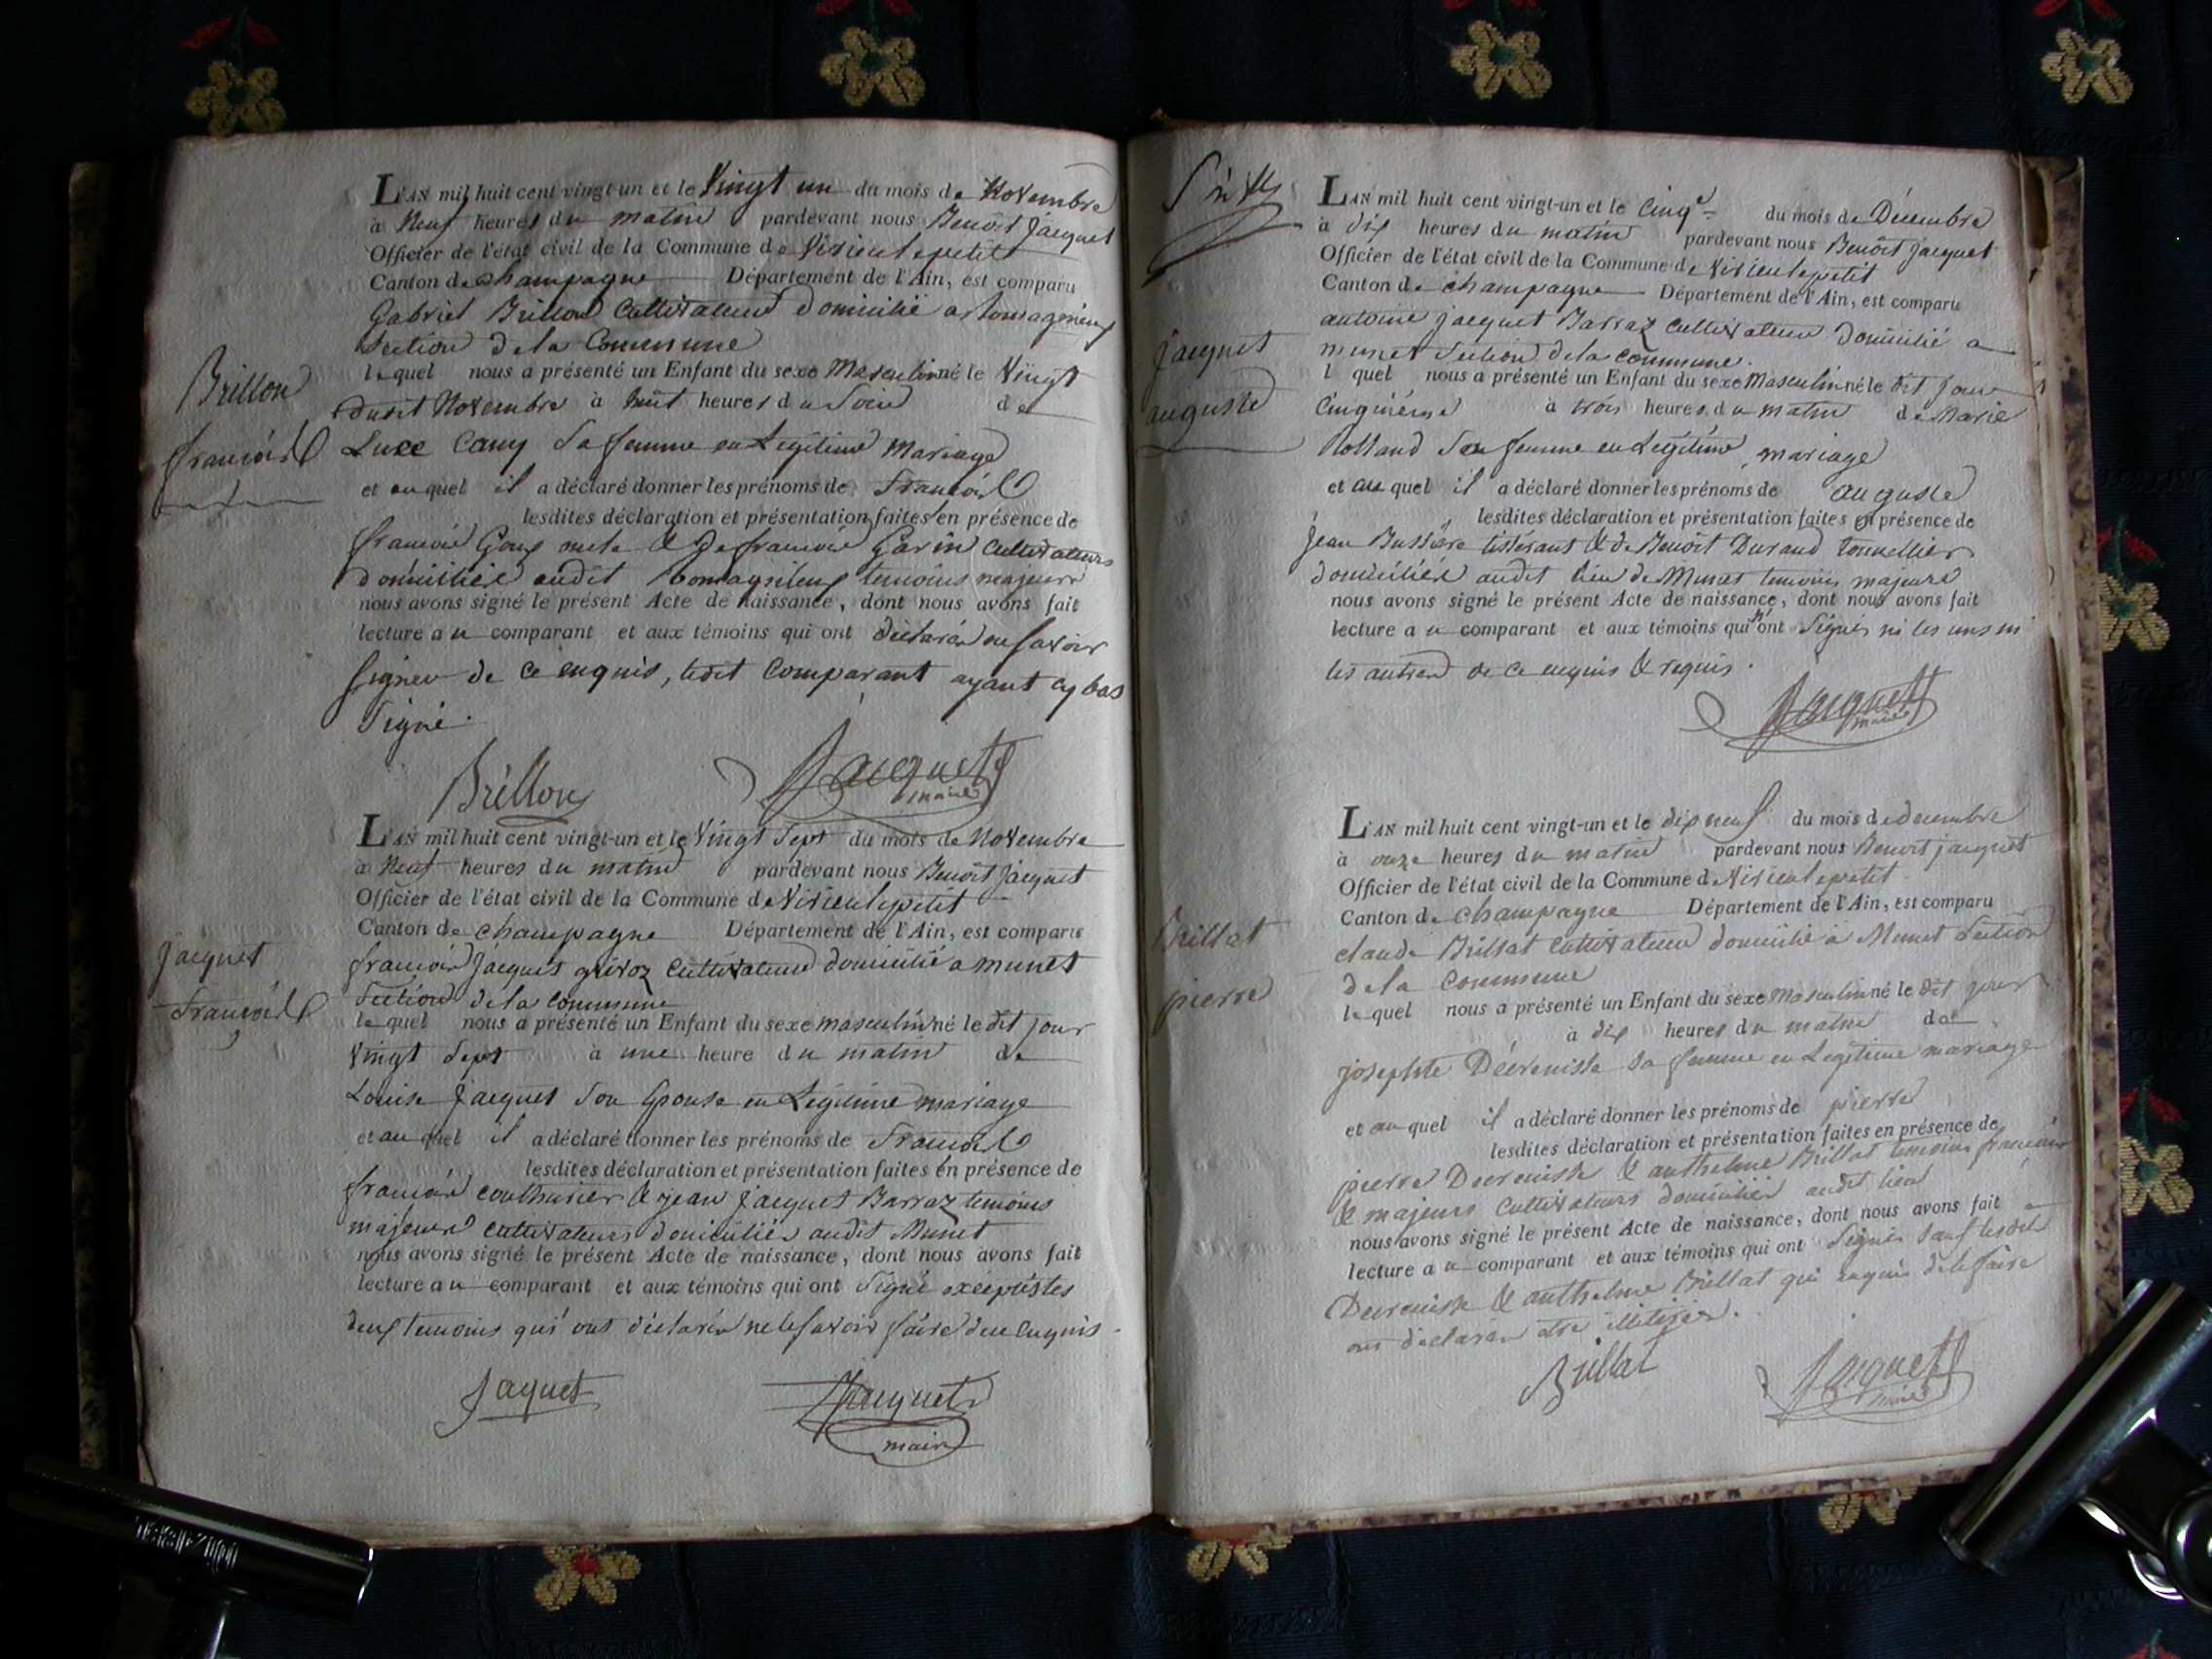 Brillon
francois
LAN mil huit cent vingt-un et le Vingt un du mois de Novembre
à Neuf heures du matin pardevant nous Benoit Jacquet
Officier de l'état civil de la Commune de Virieulepetit
Canton de Champagne Département de l'Ain, est comparu
Gabriel Brillon Cultivateur domicilié a
Section dela Commune
lequel nous a présenté un Enfant du sexe Masculin né le Vingt
dudit Novembre à huit heures du Soir de
Luce Cany Sa femme en Legitime Mariage
et auquel il a déclaré donner les prénoms de francois
lesdites déclaration et présentation faites en présence de
francois Goux & De francois Garin Cultivateurs
domiciliés audit temoins majeurs
nous avons signé le présent Acte de naissance, dont nous avons fait
lecture au comparant et aux témoins qui ont déclarés ne savoir
signer de ce enquis, ledit Comparant ayant cy bas
Signé.
Brillon Jacquet
maire
Jacquet
francois
LAN mil huit cent vingt-un et le Vingt Sept du mois de Novembre
à Neuf heures du matin pardevant nous Benoit Jacquet
Officier de l'état civil de la Commune de Virieulepetit
Canton de Champagne Département de l'Ain, est comparu
francois Jacquet Cultivateur domicilié a munet
Section dela commune
lequel nous a présenté un Enfant du sexe masculin né le dit jour
Vingt Sept à une heure du matin de
Louise Jacquet Son Epouse en Legitime mariage
et auquel il a déclaré donner les prénoms de francois
lesdites déclaration et présentation faites en présence de
francois couthurier & jean Jacquet Barraz temoins
majeurs cultivateurs domiciliés audit Munet
nous avons signé le présent Acte de naissance, dont nous avons fait
lecture au comparant et aux témoins qui ont Signé exceptés les
deux temoins qui ont déclarés ne le savoir faire de ce enquis.
Jaquet Jacquet
maire
Jacquet
auguste
LAN mil huit cent vingt-un et le Cinq du mois de Décembre
à dix heures du matin pardevant nous Benoit Jacquet
Officier de l'état civil de la Commune de Virieulepetit
Canton de Champagne Département de l'Ain, est comparu
antoine jacquet Barraz Cultivateur domicilié a
munet Section dela commune.
l quel nous a présenté un Enfant du sexe Masculin né le dit jour
Cinquième à trois heures du matin de Marie
Rolland Sa femme en Legitime mariage
et au quel il a déclaré donner les prénoms de auguste
lesdites déclaration et présentation faites en présence de
jean Bussiere tisserant & de Benoit Durand tonnellier
domiciliés audit lieu de Munet temoins majeurs
nous avons signé le présent Acte de naissance, dont nous avons fait
lecture au comparant et aux témoins qui n'ont Signés ni les uns ni
les autres de ce enquis & requis.
Jacquet
maire
Brillat
pierre
LAN mil huit cent vingt-un et le dix neuf du mois de decembre
à onze heures du matin pardevant nous Benoit jacquet
Officier de l'état civil de la Commune de Virieulepetit
Canton de Champagne Département de l'Ain, est comparu
claude Brillat cultivateur domicilié à Munet Section
dela Commune
lequel nous a présenté un Enfant du sexe masculin né le dit jour
à dix heures du matin de
josephte Décrenisse sa femme en Legitime mariage
et au quel il a déclaré donner les prénoms de pierre
lesdites déclaration et présentation faites en présence de
pierre Decrenisse & anthelme Brillat temoins francais
& majeurs Cultivateurs domiciliés audit lieu
nous avons signé le présent Acte de naissance, dont nous avons fait
lecture au comparant et aux témoins qui ont Signés Sauf lesdits
Decrenisse & anthelme Brillat qui enquis dele faire
ont déclarés etre illiterés.
Brillat Jacquet
maire